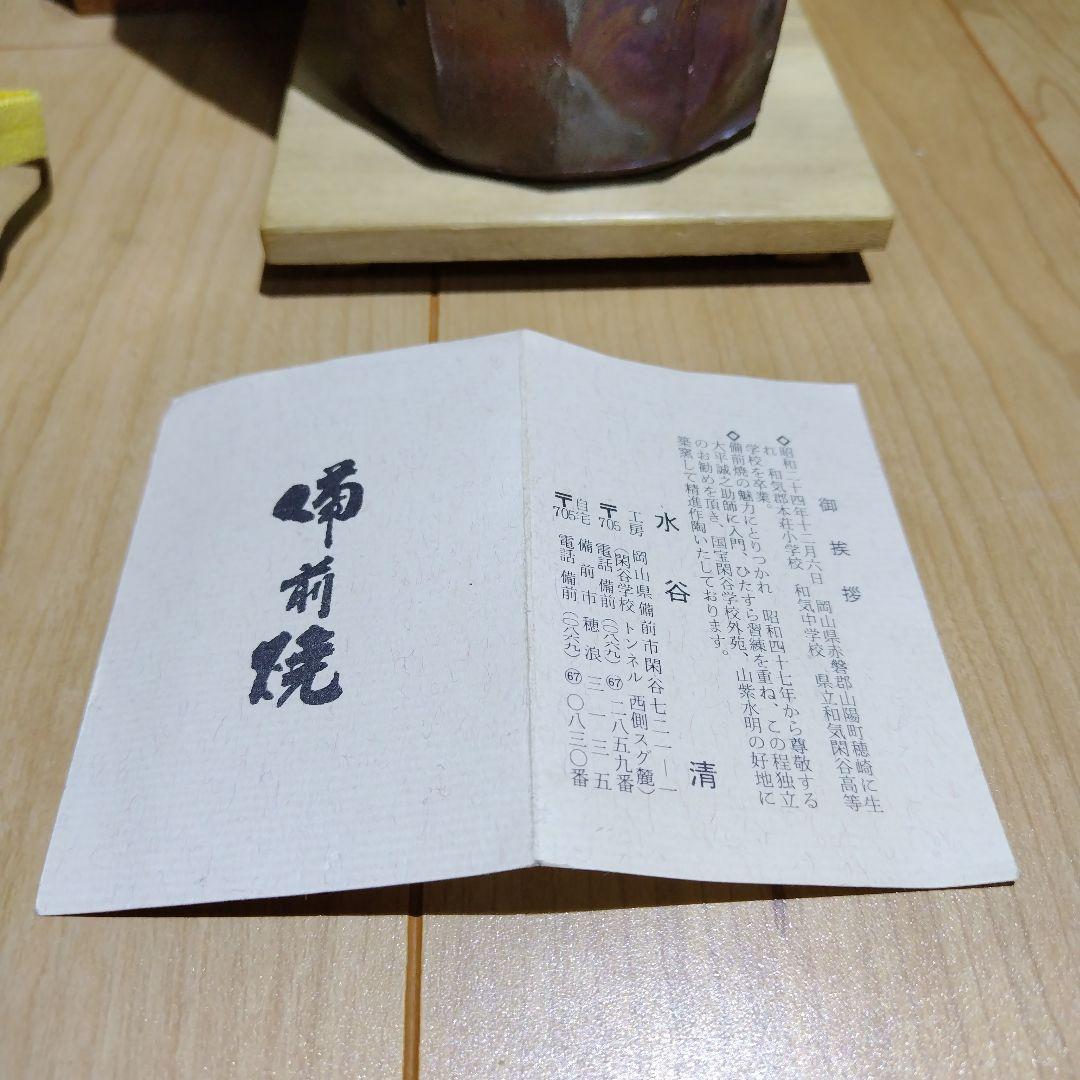 御挨拶
◇昭和二十四年十二月六日　岡山県赤磐郡山陽町穂崎に生
れ　和気郡本荘小学校　和気中学校　県立和気閑谷高等
学校を卒業。
◇備前焼の魅力にとりつかれ　昭和四十七年から尊敬する
大平誠之助師に入門、ひたすら習練を重ね、この程独立
のお勧めを頂き、国宝閑谷学校外苑、山紫水明の好地に
築窯して精進作陶いたしております。
水谷　清
工房　岡山県備前市閑谷七二一―一
（閑谷学校トンネル西側スグ麓）
〒705　電話備前（〇八六九）67二八五九番
自宅　備前市穂浪三一三五
〒705　電話備前（〇八六九）67〇八三〇番
備前焼